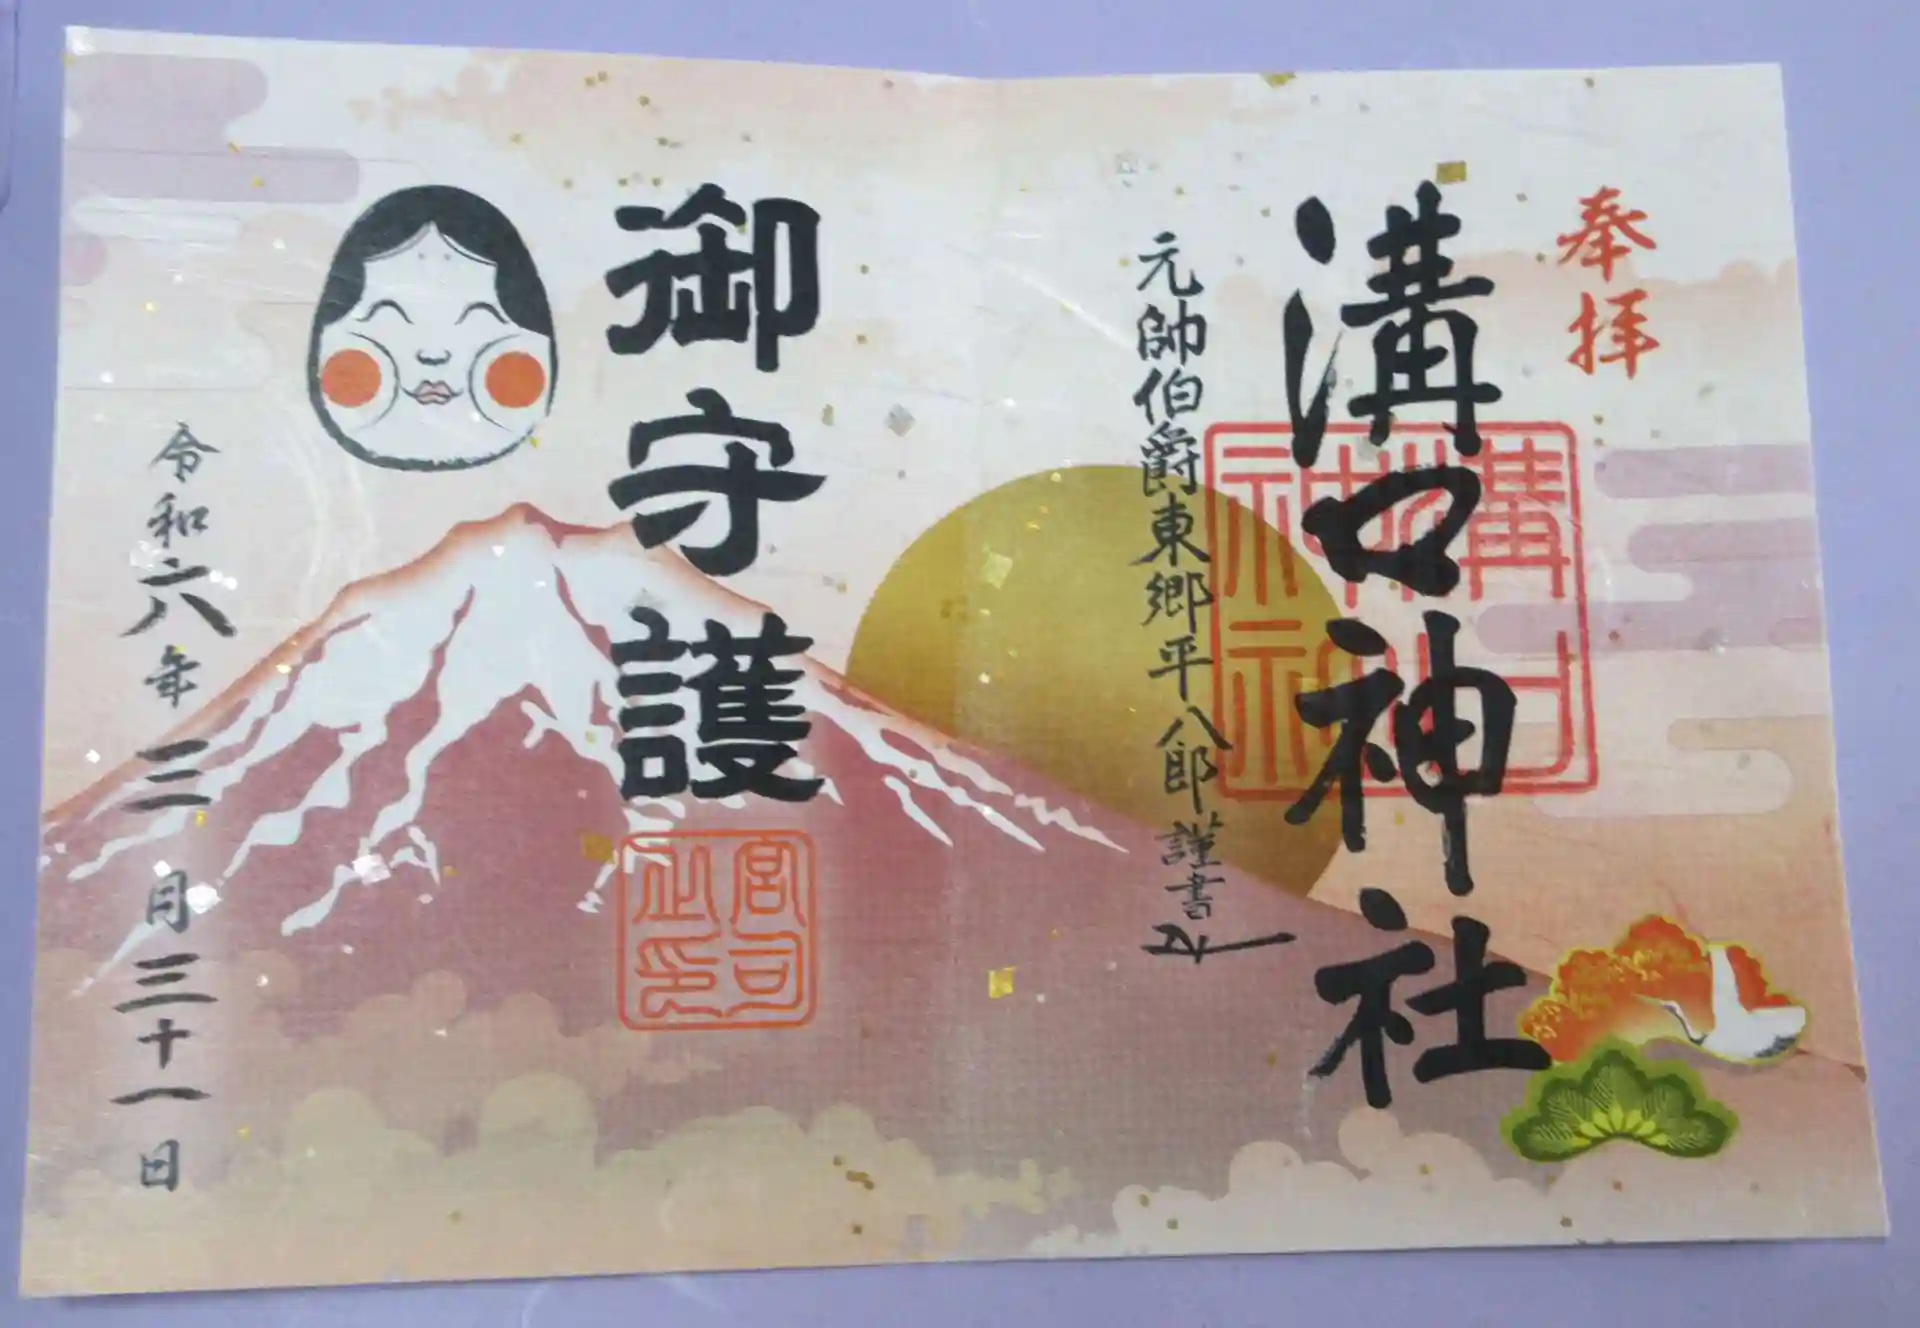 奉拝
溝口神社
溝口神社
元帥伯爵東郷平八郎謹書
御守護
宮司之印
令和六年三月三十一日